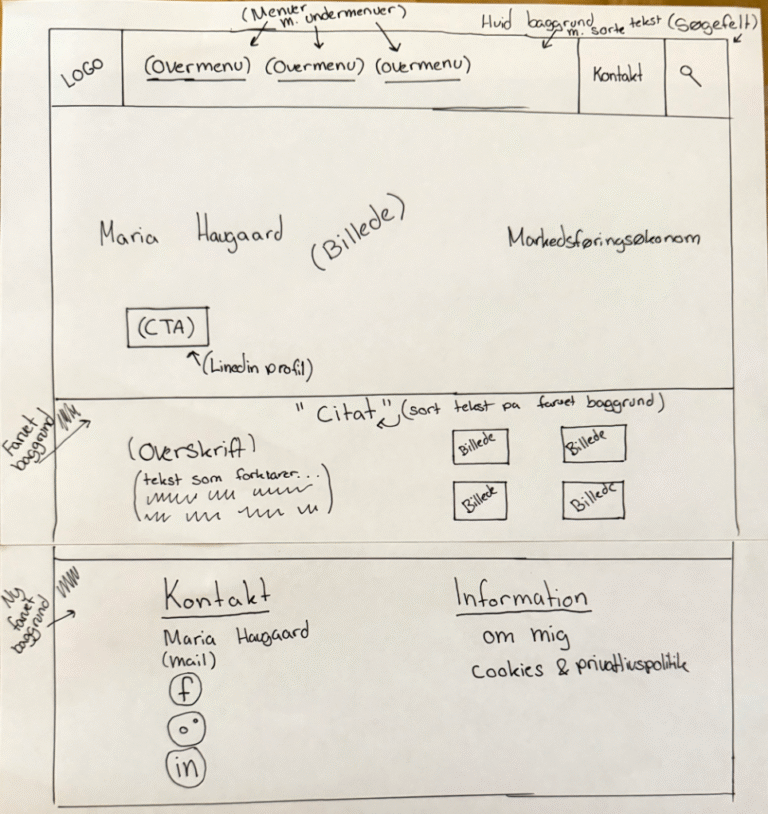 (Menuer
m. undermenuer)
Hvid baggrund
m. sorte tekst (Søgefelt)
LOGO
(Overmenu) (Overmenu) (Overmenu)
Kontakt
Maria Haugaard
(Billede)
Markedsføringsøkonom
(CTA)
(Linedin profil)
Farvet
baggrund
"Citat" (sort tekst på farvet baggrund)
(Overskrift)
(tekst som forklarer...
)
Billede
Billede
Billede
Billede
Ny
farvet
baggrund
Kontakt
Maria Haugaard
(mail)
f
in
Information
om mig
Cookies & privatlivspolitik